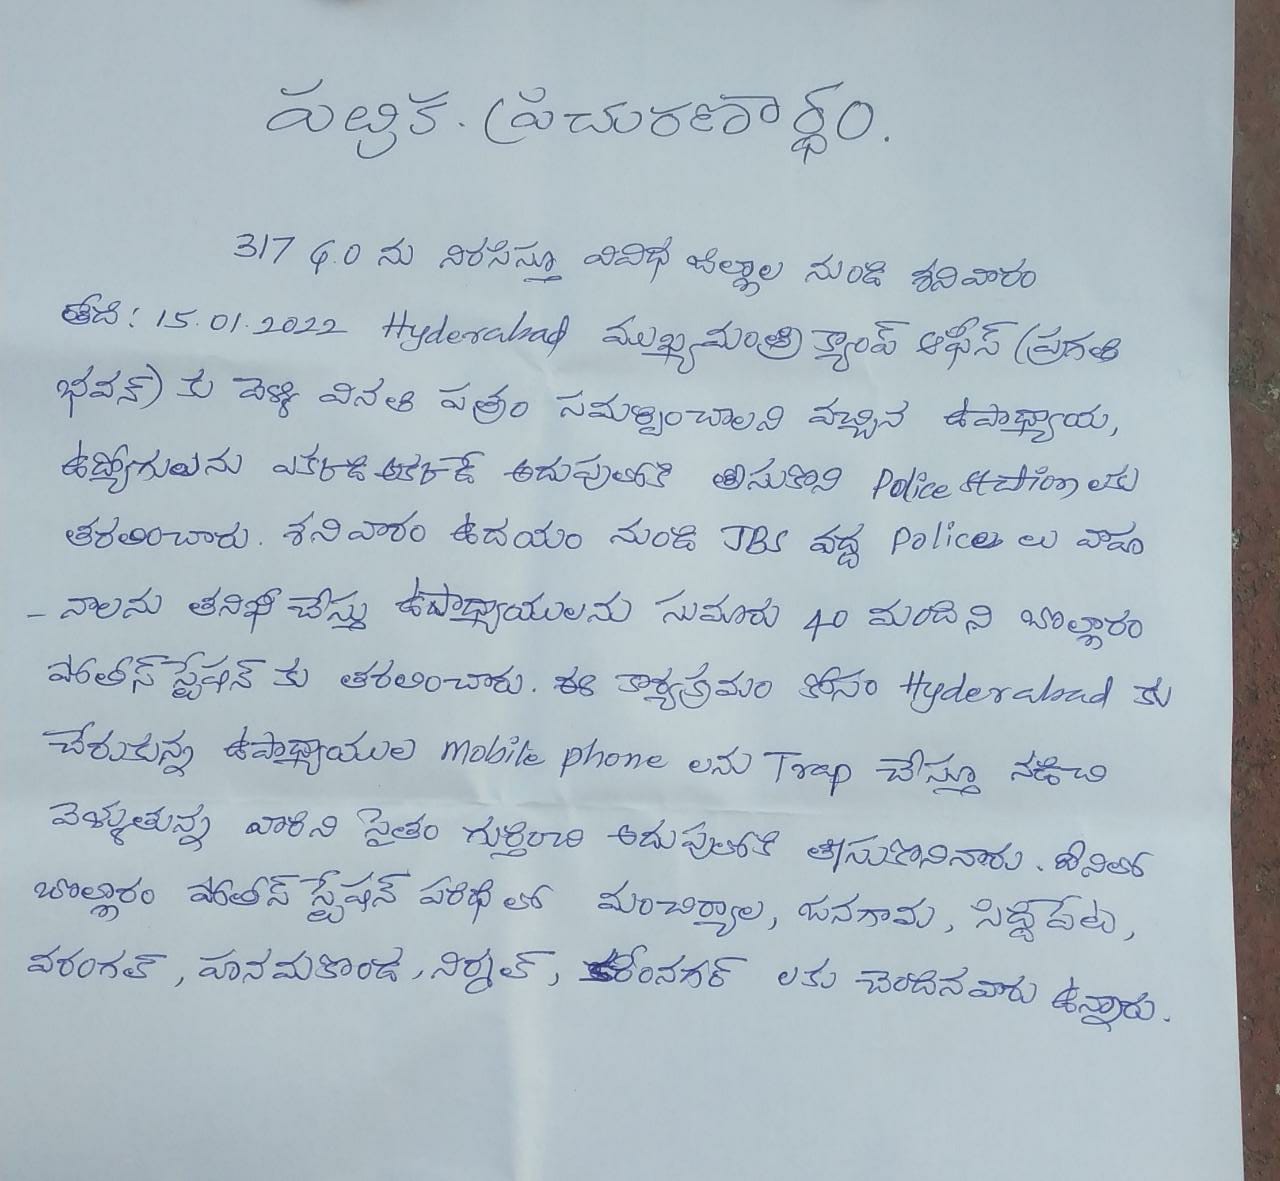 పత్రిక. ప్రచురణార్థం.
317 G.O ను నిరసిస్తూ వివిధ జిల్లాల నుండి శనివారం
తేది: 15.01.2022 Hyderabad ముఖ్యమంత్రి క్యాంప్ ఆఫీస్ (ప్రగతి
భవన్) కు వెళ్ళి వినతి పత్రం సమర్పించాలని వచ్చిన ఉపాధ్యాయ,
ఉద్యోగులను ఎకకడి అకకడే అదుపులోకి తీసుకొని Police లకు
తరలించారు. శనివారం ఉదయం నుండి JBS వద్ద Police లు వాహ
- నాలను తనిఖీ చేస్తు ఉపాధ్యాయులను సుమారు 40 మందిని బొల్లారం
పోలీస్ స్టేషన్ కు తరలించారు. ఈ కార్యక్రమం కోసం Hyderabad కు
చేరుకున్న ఉపాధ్యాయుల mobile phone లను Trap చేస్తూ నడిచి
వెళ్ళుతున్న వారిని సైతం గుర్తించి అదుపులోకి తీసుకొనినారు. దీనిలో
బొల్లారం పోలీస్ స్టేషన్ పరిధి లో మంచిర్యాల, జనగామ, సిద్దిపేట,
వరంగల్, హనమకొండ, నిర్మల్, కరీంనగర్ లకు చెందిన వారు ఉన్నారు.